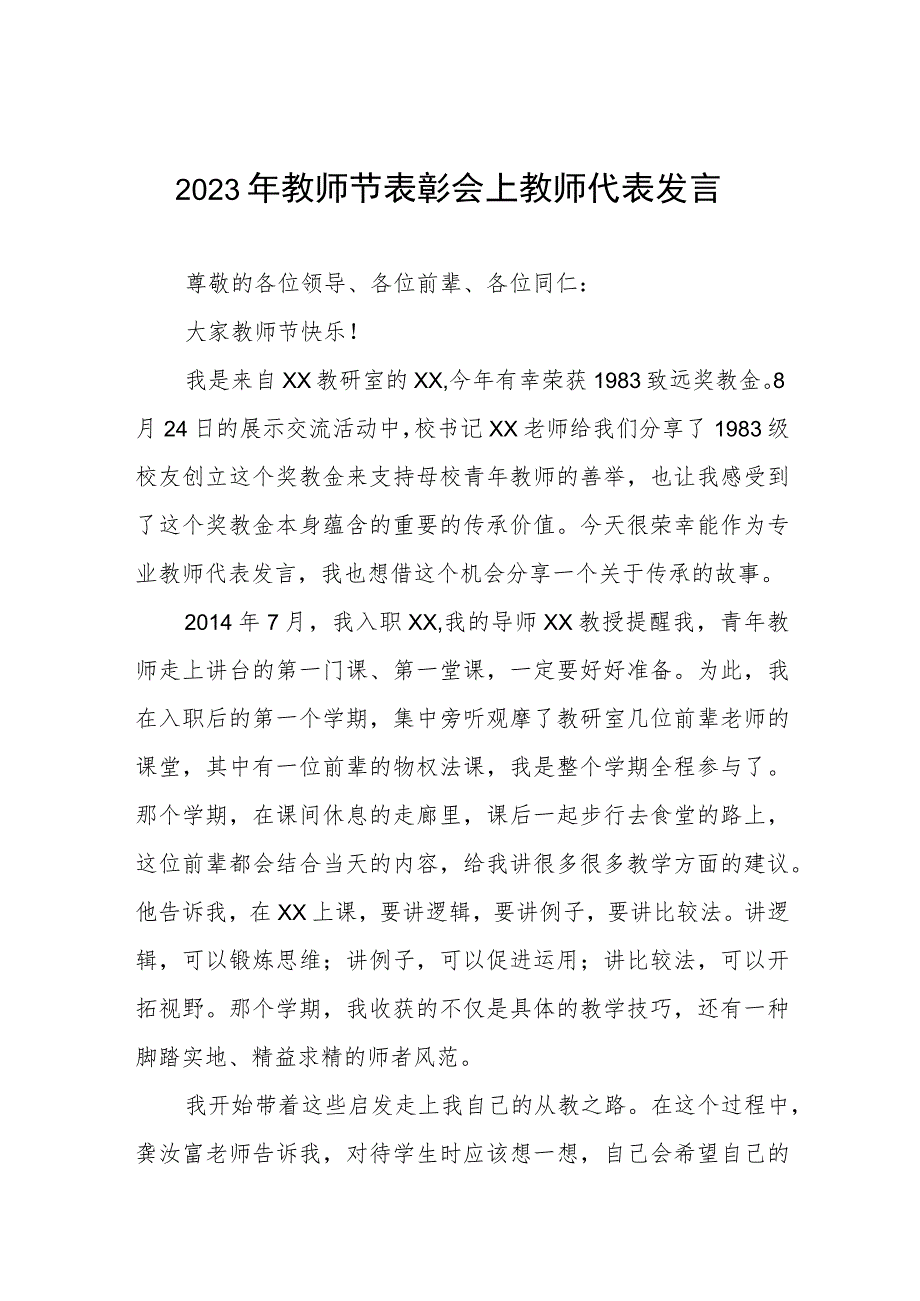 2023年教师节表彰会上教师代表发言
尊敬的各位领导、各位前辈、各位同仁：
大家教师节快乐！
我是来自XX教研室的XX,今年有幸荣获1983致远奖教金。8
月24日的展示交流活动中，校书记XX老师给我们分享了1983级
校友创立这个奖教金来支持母校青年教师的善举，也让我感受到
了这个奖教金本身蕴含的重要的传承价值。今天很荣幸能作为专
业教师代表发言，我也想借这个机会分享一个关于传承的故事。
2014年7月，我入职XX,我的导师XX教授提醒我，青年教
师走上讲台的第一门课、第一堂课，一定要好好准备。为此，我
在入职后的第一个学期，集中旁听观摩了教研室几位前辈老师的
课堂，其中有一位前辈的物权法课，我是整个学期全程参与了。
那个学期，在课间休息的走廊里，课后一起步行去食堂的路上，
这位前辈都会结合当天的内容，给我讲很多很多教学方面的建议。
他告诉我，在XX上课，要讲逻辑，要讲例子，要讲比较法。讲逻
辑，可以锻炼思维；讲例子，可以促进运用；讲比较法，可以开
拓视野。那个学期，我收获的不仅是具体的教学技巧，还有一种
脚踏实地、精益求精的师者风范。
我开始带着这些启发走上我自己的从教之路。在这个过程中，
龚汝富老师告诉我，对待学生时应该想一想，自己会希望自己的